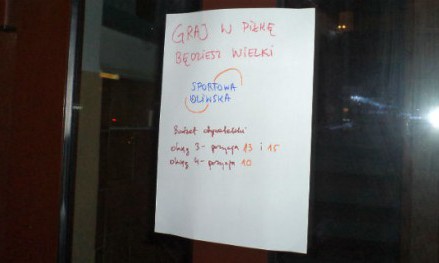 GRAJ W PIŁKĘ
BĘDZIESZ WIELKI
SPORTOWA
OLIWSKA
Budżet obywatelski
okręg 3 - pozycja 13 i 15
okręg 4 - pozycja 10